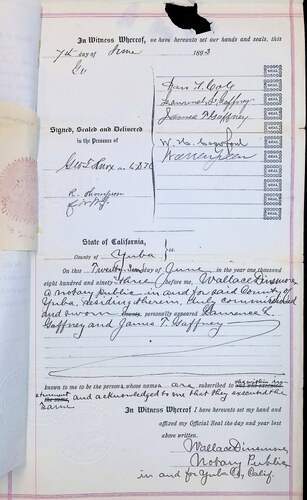 In Witness Whereof, we have hereunto set our hands and seals, this
7th day of June 1893
Lawrence L. Gaffney
James T Gaffney
Signed, Sealed and Delivered
in the Presence of
W. H. Crawford
Geo T. Knox as to
R. Thompson
State of California,
County of Yuba } ss.
On this Twenty day of June in the year one thousand
eight hundred and ninety three before me, Wallace Dinsmore
a notary public in and for said County of
Yuba, residing therein, duly commissioned
and sworn personally appeared Lawrence L.
Gaffney and James T. Gaffney
known to me to be the persons whose names are subscribed to the within in-
strument and acknowledged to me that they executed the
same
In Witness Whereof I have hereunto set my hand and
affixed my Official Seal the day and year last
above written.
Wallace Dinsmore
Notary Public
in and for Yuba Co, Calif.